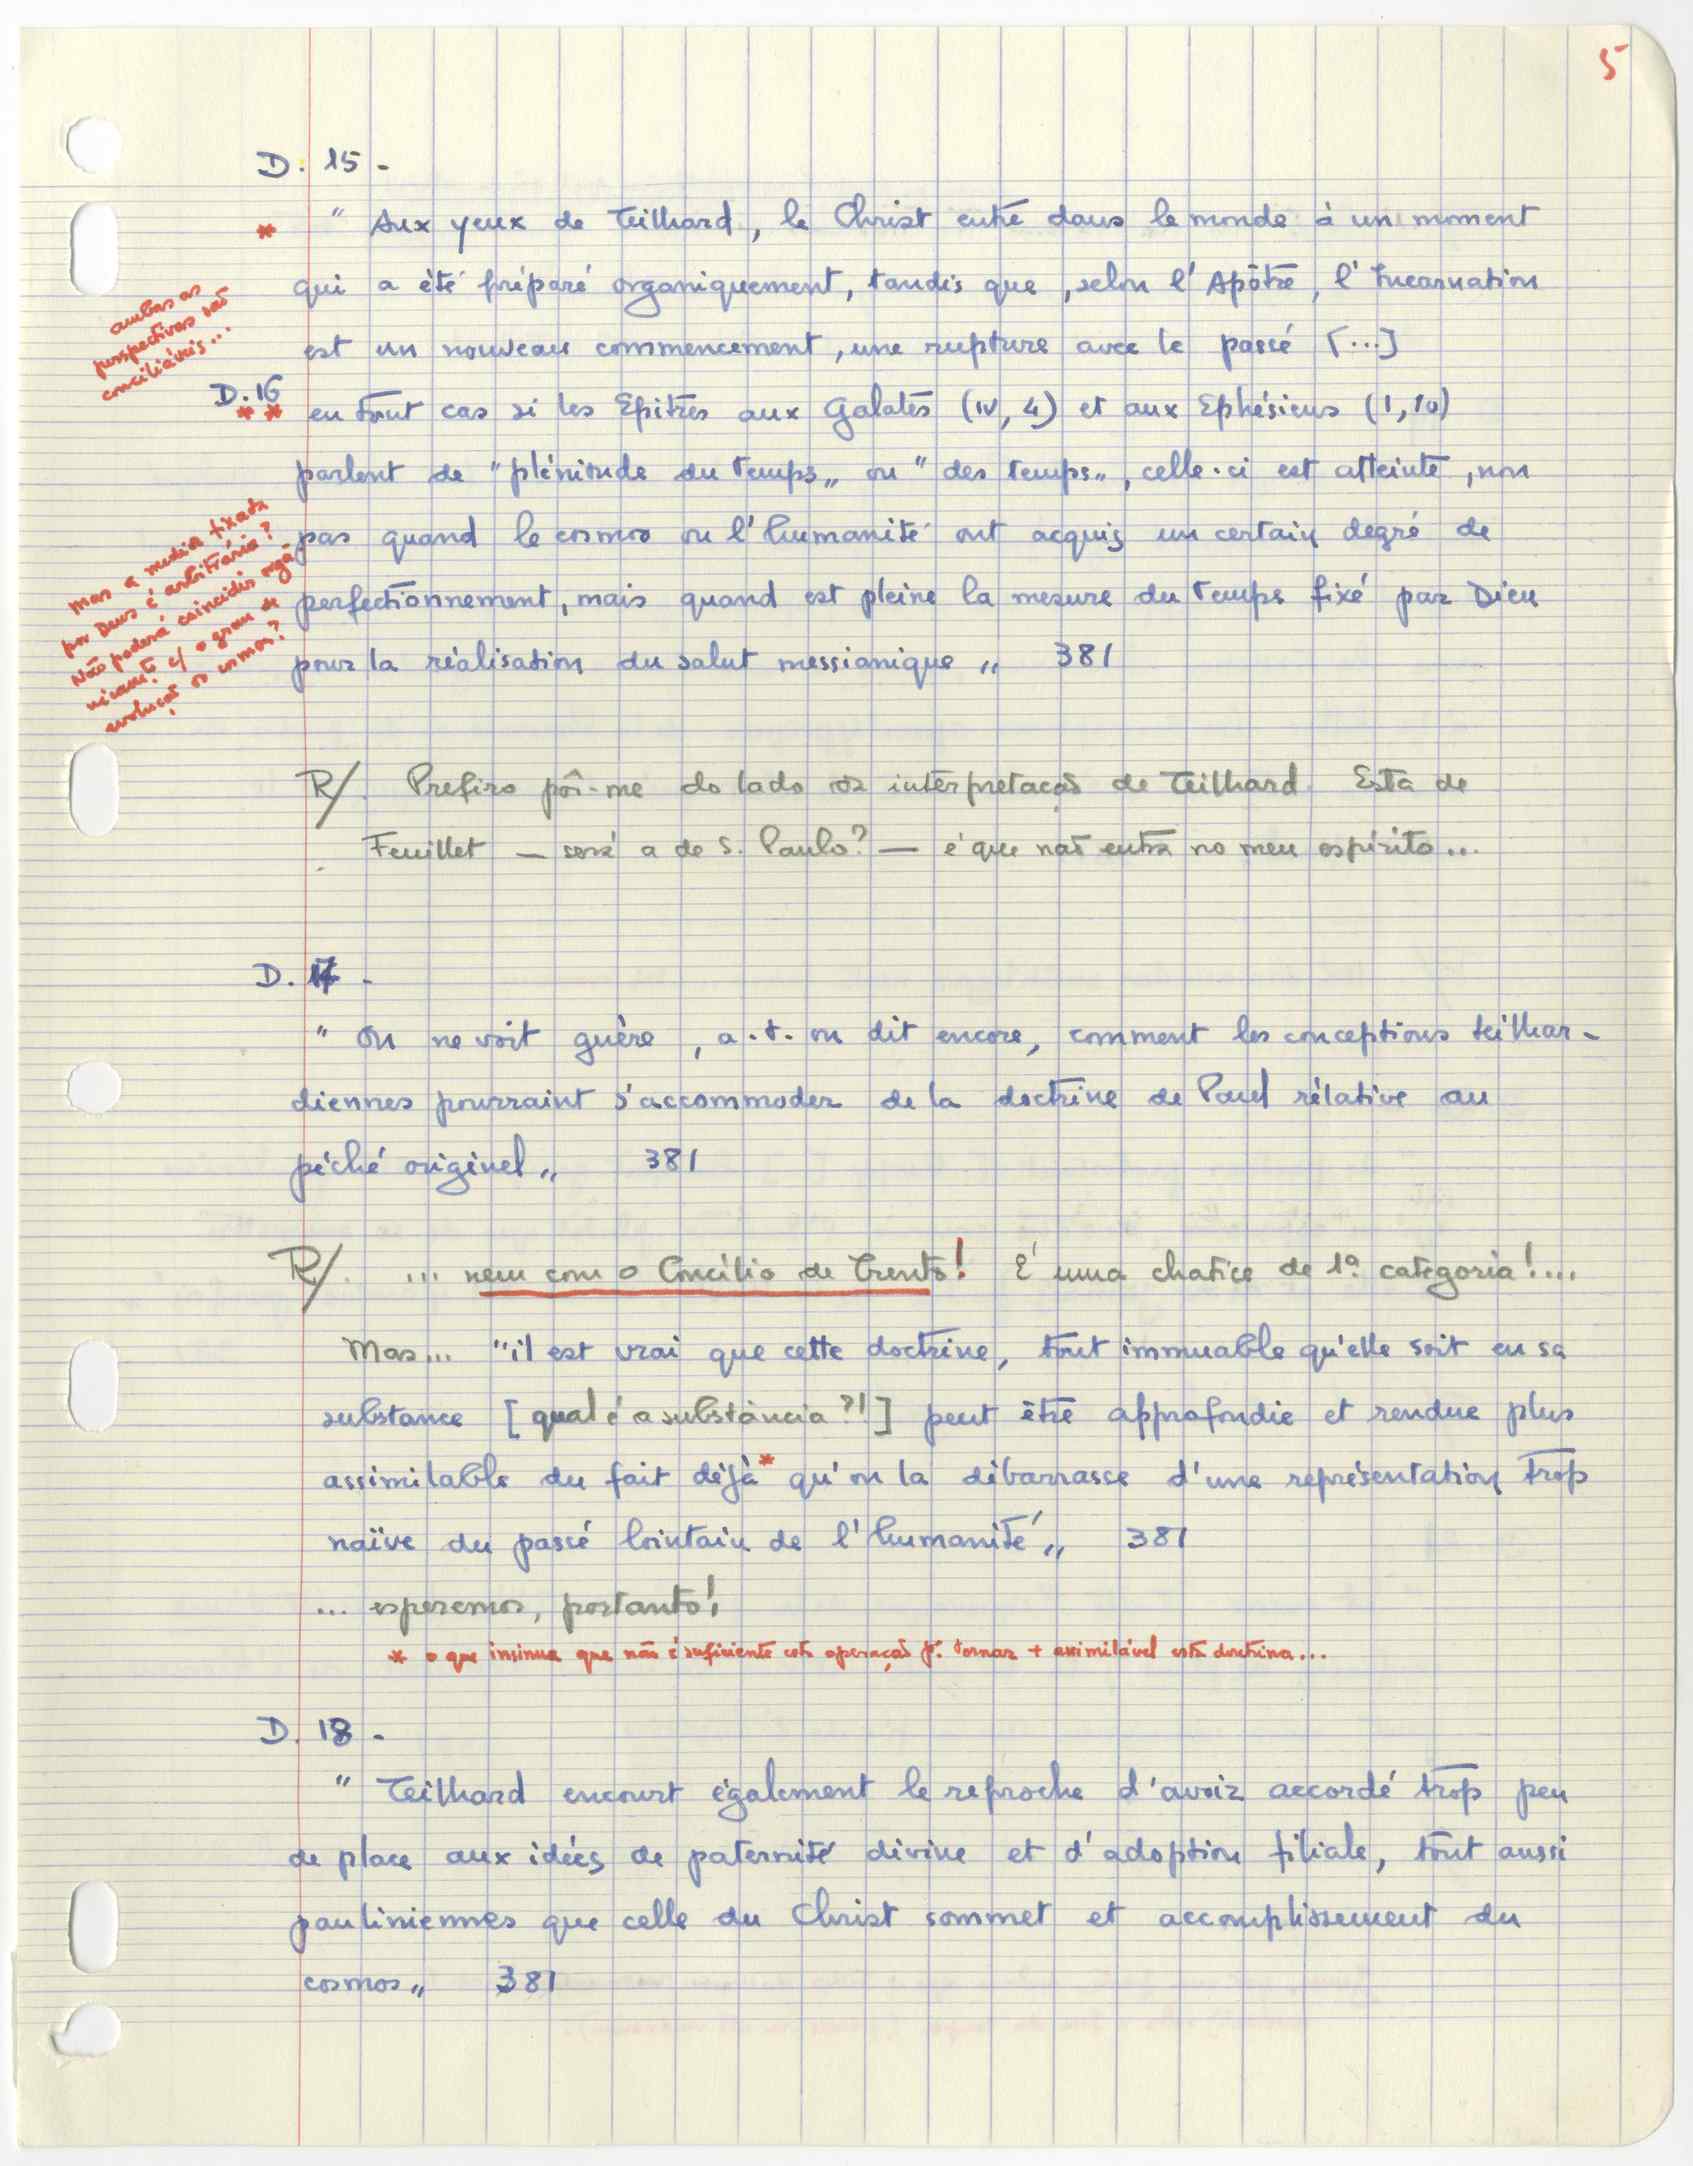 5
D. 15 -
* " Aux yeux de Teilhard, le Christ entre dans le monde à un moment
qui a été préparé organiquement, tandis que, selon l'Apôtre, l'Incarnation
est un nouveau commencement, une rupture avec le passé [...]
ambas as
perspectivas são
conciliáveis...
D. 16
** en tout cas si les Epitres aux Galates (IV, 4) et aux Ephésiens (1, 10)
parlent de "plénitude du temps„ ou "des temps„, celle-ci est atteinte, non
pas quand le cosmos ou l'humanité ont acquis un certain degré de
perfectionnement, mais quand est pleine la mesure du temps fixé par Dieu
pour la réalisation du salut messianique „ 381
mas a medida fixada
por Deus é arbitrária?
Não poderá coincidir orgâ-
nicamte c/ o grau de
evolução do cosmos?
R/. Prefiro pôr-me do lado da interpretação de Teilhard. Esta de
Feuillet — será a de S. Paulo? — é que não entra no meu espírito...
D. 17 -
" On ne voit guère, a.t. on dit encore, comment les conceptions teilhar-
diennes pourraint s'accommoder de la doctrine de Paul rélative au
péché originel „ 381
R/. ... nem com o Concílio de Trento! É uma chatice de 1ª categoria!...
Mas... "il est vrai que cette doctrine, tout immuable qu'elle soit en sa
substance [qual é a substância?!] peut être approfondie et rendue plus
assimilable du fait déjà* qu'on la débarrasse d'une représentation trop
naïve du passé lointain de l'humanité „ 381
... esperemos, portanto!
* o que insinua que não é suficiente esta operação p. tornar + assimilável esta doutrina...
D. 18 -
" Teilhard encourt également le reproche d'avoir accordé trop peu
de place aux idées de paternité divine et d'adoption filiale, tout aussi
pauliniennes que celle du Christ sommet et accomplissement du
cosmos „ 381